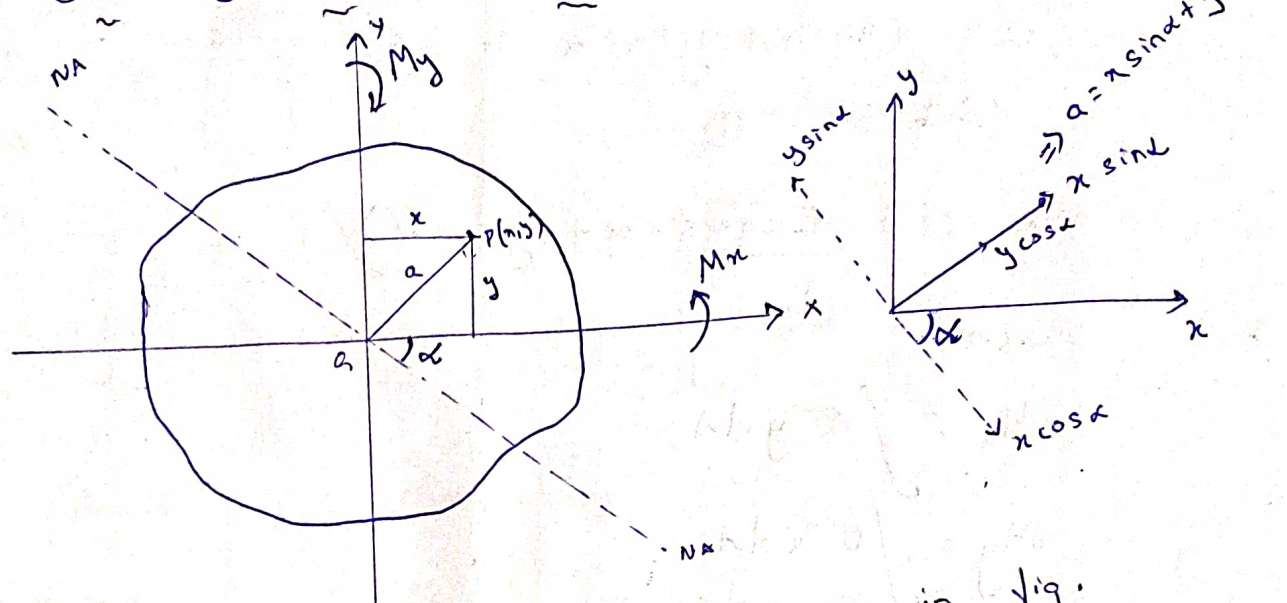 NA
y
My
x
P(x,y)
a
y
Mx
x
G
α
NA
y
y sinα
a = x sinα + y
x sinα
y cosα
α
x
x cosα
in fig.